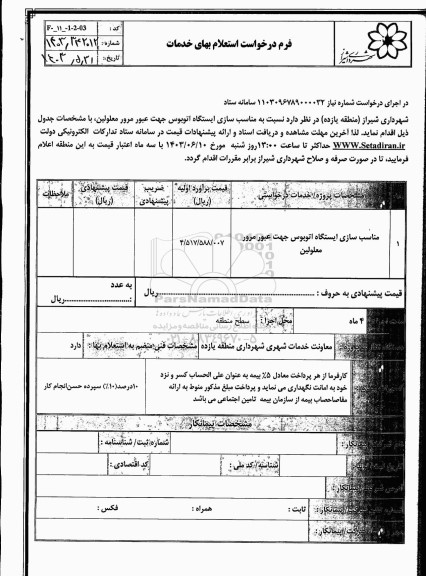 فرم درخواست استعلام بهای خدمات
کد : F-_11_-1-2-03
شماره:
تاریخ:
در اجرای درخواست شماره نیاز ۱۱۰۳۰۹۶۷۸۹۰۰۰۰۳۲ سامانه ستاد
شهرداری شیراز (منطقه یازده) در نظر دارد نسبت به مناسب سازی ایستگاه اتوبوس جهت عبور مرور معلولین، با مشخصات جدول
ذیل اقدام نماید. لذا آخرین مهلت مشاهده و دریافت اسناد و ارائه پیشنهادات قیمت در سامانه ستاد تدارکات الکترونیکی دولت
WWW.Setadiran.ir حداکثر تا ساعت ۱۳:۰۰روز شنبه مورخ ۱۴۰۳/۰۶/۱۰ با سه ماه اعتبار قیمت به این منطقه اعلام
فرمایید، تا در صورت صرفه و صلاح شهرداری شیراز برابر مقررات اقدام گردد.
مشخصات پروژه/ خدمات درخواستی
قیمت برآورد اولیه (ریال)
ضریب پیشنهادی
قیمت پیشنهادی (ریال)
ملاحظات
۱
مناسب سازی ایستگاه اتوبوس جهت عبور مرور
معلولین
۲/۵۱۷/۵۸۸/۰۰۷
قیمت پیشنهادی به حروف : ریال
به عدد
: ریال
ParsNamadData
۴ ماه
محل اجرا :
سطح منطقه
معاونت خدمات شهری شهرداری منطقه یازده
مشخصات فنی منضم به استعلام بها :
دارد
کارفرما از هر پرداخت معادل ۵% بیمه به عنوان علی الحساب کسر و نزد
خود به امانت نگهداری می نماید و پرداخت مبلغ مذکور منوط به ارائه
مفاصاحساب بیمه از سازمان بیمه تامین اجتماعی می باشد
۱۰درصد(۱۰%) سپرده حسن انجام کار
مشخصات پیمانکار
شماره ثبت/ شناسنامه :
شناسه/ کد ملی :
کد اقتصادی :
ثابت :
همراه :
فکس :